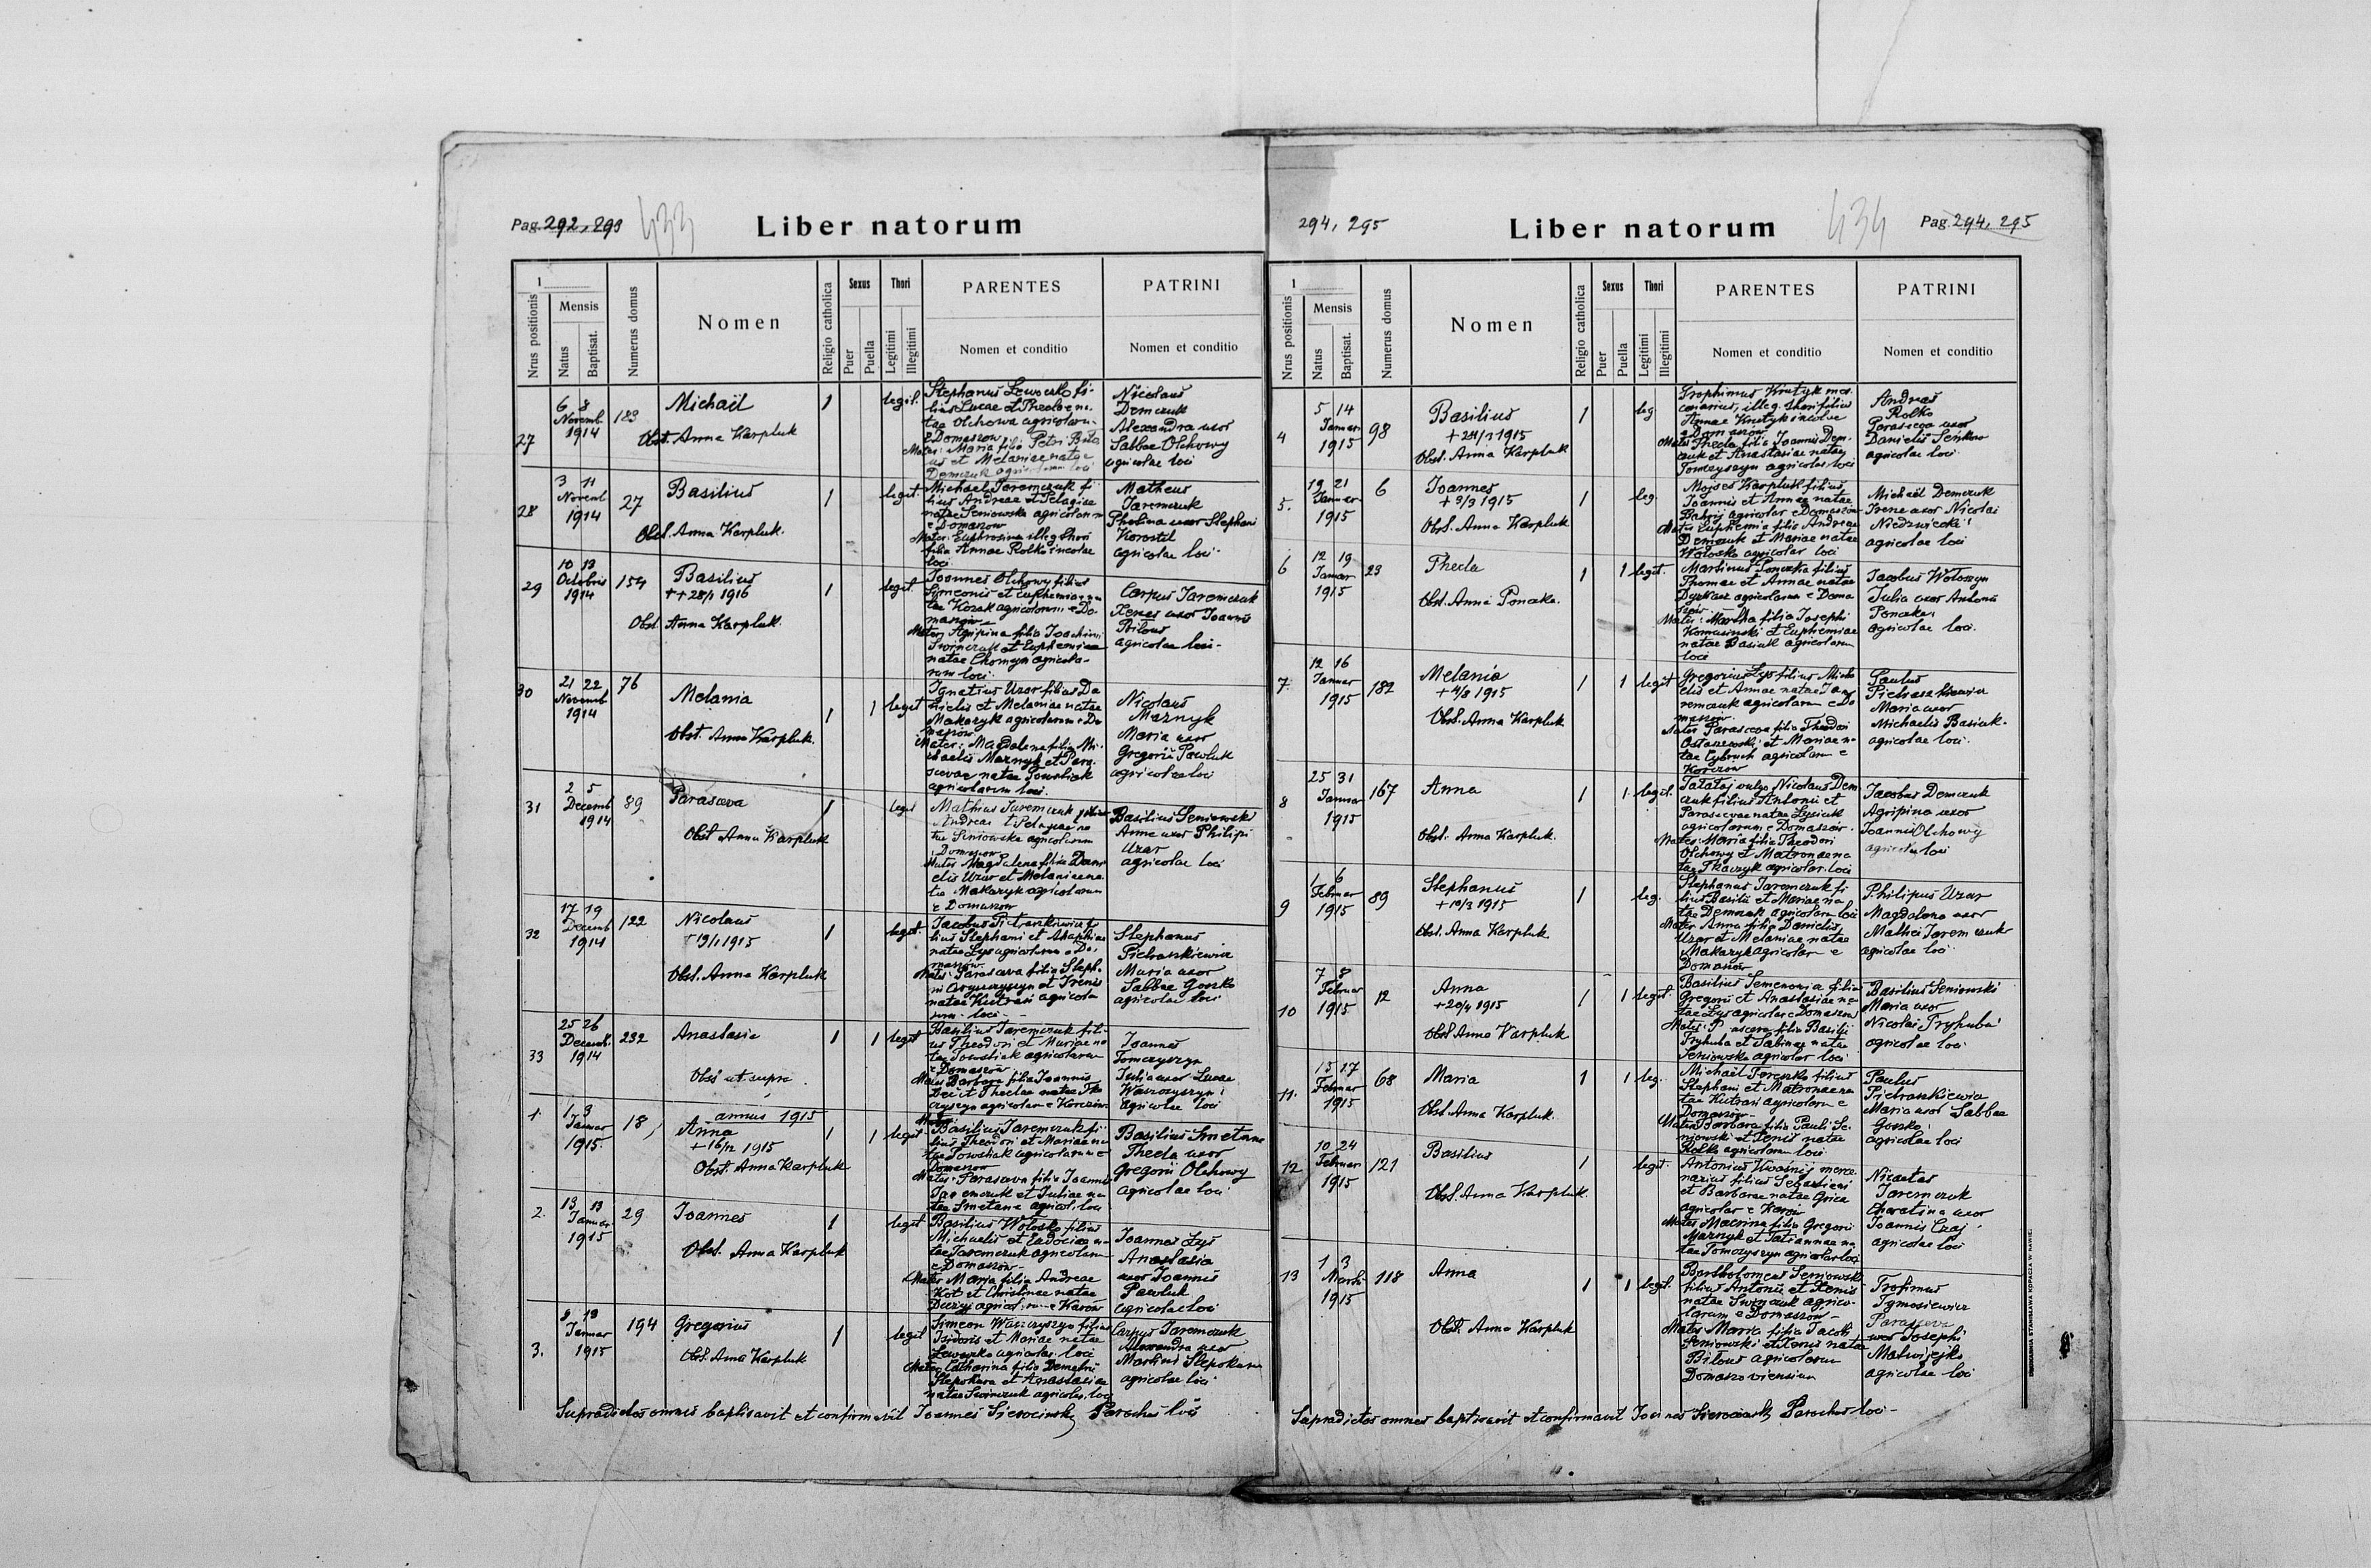 Pag. 292, 293
433
Liber natorum
1
Nrus positionis
Mensis
Natus
Baptisat.
Numerus domus
Nomen
Religio catholica
Sexus
Puer
Puella
Thori
Legitimi
Illegitimi
PARENTES
Nomen et conditio
PATRINI
Nomen et conditio
27
6 8
Novemb
1914
183
Michaël
Obst. Anna Karpluk
1
legit.
Stephanus Lewoczko fi-
lius Lucae et Theclae na-
tae Olchowa agricolarum
e Domaszow
Mater: Maria filia Petri
et Melaniae natae
Demczuk agricolarum loci
Nicolaus
Demczuk
Alexandra uxor
Sabbae Olchowy
agricolae loci
28
3 11
Novemb
1914
27
Basilius
Obst. Anna Karpluk.
1
legit.
Michael Jaremczuk fi-
lius Andreae et Pelagiae
natae Seniowska agricolarum
e Domaszow
Mater: Euphrosina illeg. thori
filia Annae Rolko incolae
loci
Matheus
Jaremczuk
Pholina uxor Stephani
Korostil
agricolae loci.
29
10 13
Octobris
1914
154
Basilius
++ 28/1 1916
Obst. Anna Karpluk.
1
legit.
Joannes Olchowy filius
Simeonis et Euphemiae na-
tae Kozak agricolarum e Do-
maszow
Mater Agripina filia Joachimi
Swinczuk et Euphemiae
natae Chomyn agricola-
rum loci.
Carpus Jaremczuk
Xenes uxor Joannis
Bilous
agricolae loci.
30
21 22
Novemb
1914
76
Melania
Obst. Anna Karpluk.
1
1
legit
Ignatius Uzar filius Da
nielis et Melaniae natae
Makaryk agricolarum e Do
maszow
Mater: Magdalena filia Mi-
chaelis Maznyk et Para-
scevae natae Towstiak
agricolarum loci.
Nicolaus
Maznyk
Maria uxor
Gregorii Pawluk
agricolae loci
31
2 5
Decemb
1914
89
Parasceva
Obst Anna Karpluk
1
legit
Mathias Jaremczuk filius
Andreae et Pelagiae na
tae Siniowska agricolarum
e Domaszow
Mater Magdalena filia Dani
elis Uzar et Melaniae na
tae Makaryk agricolarum
e Domaszow
Basilius Seniowski
Anna uxor Philipi
Uzar
agricolae loci
32
17 19
Decemb
1914
122
Nicolaus
+ 19/1 1915
Obst. Anna Karpluk
1
legit.
Jacobus Pietraszkiewicz fi
lius Stephani et Agaphiae
natae Lys agricolarum e Do-
maszow
Mater Parasceva filia Steph-
ni et Irenis
natae Kutrań agricola
rum loci.
Stephanus
Pietraszkiewicz
Maria uxor
Sabbae Goszko
agricolae loci
33
25 26
Decemb.
1914
232
Anastasia
Obst ut supra.
1
1
legit
Basilius Jaremczuk fili-
us Theodori et Mariae na
tae Towstiak agricolarum
e Domaszow
Mater Barbara filia Joannis
et Theclae natae
agricolarum e Korczow
Joannes
Tomczyszyn
Julia uxor Lucae
Waszczyszyn
agricolae loci
annus 1915
1.
1 3
Januar
1915.
18
Anna
+ 16/12 1915
Obst. Anna Karpluk
1
1
legit
Basilius Jaremczuk fi-
lius Theodori et Mariae na
tae Towstiak agricolarum e
Domaszow
Mater: Parasceva filia Joannis
Jaremczuk et Juliae na
tae Smetana agricol. loci
Basilius Smetana
Thecla uxor
Gregorii Olchowy
agricolae loci
2.
13 13
Januar
1915
29
Joannes
Obst. Anna Karpluk
1
legit
Basilius Wołoszko filius
Michaelis et Eudociae na
tae Jaremczuk agricolarum
e Domaszow
Mater Maria filia Andreae
Kot et Christinae natae
agricolarum e Karów
Joannes Lys
Anastasia
uxor Joannis
Pawluk
agricolae loci
3.
8 13
Januar
1915
194
Gregorius
Obst. Anna Karpluk
1
legit
Simeon Waszczyszyn filius
Isidoris et Mariae natae
Lewoczko agricolar. loci
Mater Catharina filia Demetrii
Slepokura et Anastasiae
natae Swinczuk agricolar. loci
Carpus Jaremczuk
Alexandra uxor
Martini Slepokura
agricolae loci.
Supradictos omnes baptisavit et confirmavit Joannes Sierocinsky Parochus loci
294, 295
Liber natorum
434
Pag. 294, 295
1
Nrus positionis
Mensis
Natus
Baptisat.
Numerus domus
Nomen
Religio catholica
Sexus
Puer
Puella
Thori
Legitimi
Illegitimi
PARENTES
Nomen et conditio
PATRINI
Nomen et conditio
4
5 14
Januar
1915
98
Basilius
+ 24/1 1915
Obst. Anna Karpluk
1
leg
Trophimus Krutyk mer-
cenarius, illeg. thori filius
Annae Krutyk incolae
e Domaszow
Mater Thecla filia Joannis Dem-
czuk et Anastasiae natae
Tomczyszyn agricolar. loci
Andreas
Rolko
Parasceva uxor
Danielis Seńkow
agricolae loci
5.
19 21
Januar
1915
6
Joannes
+ 3/3 1915
Obst. Anna Karpluk
1
leg.
Mojses Karpluk filius
Joannis et Annae natae
Bahrij agricolar. e Domaszow
Mater Euphemia filia Andreae
Demczuk et Mariae natae
Wołoszko agricolar loci
Michaël Demczuk
Irene uxor Nicolai
Niedzwiecki
agricolae loci
6
12 19
Januar
1915
23
Thecla
Obst. Anna Ponaka.
1
1
legit.
Martinus filius
Thomae et Annae natae
agricolarum e Doma
szow
Mater: Martha filia Josephi
Komasinski et Euphemiae
natae Basiuk agricolarum
loci
Jacobus Wołoszyn
Julia uxor Antonii
Ponaka
agricolae loci.
7.
12 16
Januar
1915
182
Melania
+ 4/8 1915
Obst. Anna Karpluk
1
1
legit
Gregorius Lys filius Micha
elis et Annae natae Ja-
remczuk agricolarum e Do
maszow
Mater Parasceva filia Theodori
Ostaszewski et Mariae na-
tae Cybruch agricolarum e
Korczow
Paulus
Pietraszkiewicz
Maria uxor
Michaelis Basiuk.
agricolae loci.
8
25 31
Januar
1915
167
Anna
Obst. Anna Karpluk.
1
1
legit.
Tatataj vulgo Nicolaus Dem
czuk filius Antonii et
Parascevae natae Lysiuk
agricolarum e Domaszow.
Mater: Maria filia Theodori
Olchowy et Matronae na
tae Tkaczyk agricolar. loci
Jacobus Demczuk
Agripina uxor
Joannis Olchowy
agricolae loci
9
1 6
Februar
1915
89
Stephanus
+ 10/3 1915
Obst. Anna Karpluk
1
leg.
Stephanus Jaremczuk fi
lius Basilii et Mariae na
tae Demczuk agricolarum loci
Mater Anna filia Danielis
Uzar et Melaniae natae
Makaryk agricolar e
Domaszow
Philipus Uzar
Magdalena uxor
Mathei Jaremczuk
agricolae loci
10
7 8
Februar
1915
12
Anna
+ 20/4 1915
Obst Anna Karpluk
1
1
legit.
Basilius Semeronia filius
Gregorii et Anastasiae na-
tae Lys agricolar e Domaszow
Mater: Parasceva filia Basilii
Tryhuba et Sabinae natae
Seniowska agricolar loci
Basilius Seniowski
Maria uxor
Nicolai Tryhuba
agricolae loci
11.
15 17
Februar
1915
68
Maria
Obst. Anna Karpluk.
1
1
leg.
Michaël Tereszko filius
Stephani et Matronae na
tae Kutrań agricolarum e
Domaszow
Mater Barbara filia Pauli Se-
niowski et Xenis natae
Rolko agricolarum loci
Paulus
Pietraszkiewicz
Maria uxor Sabbae
Goszko
agricolae loci
12
10 24
Februar
1915
121
Basilius
Obst. Anna Karpluk
1
legit.
Antonius Kwaśnij merce-
narius filius Sebastiani
et Barbarae natae Grica
agricolar e Karów
Mater Macrina filia Gregorii
Maznyk et Tatiannae na
tae Tomczyszyn agricolar loci
Nicaetas
Jaremczuk
Charetina uxor
Joannis Czaj
agricolae loci
13
1 3
Martii
1915
118
Anna
Obst. Anna Karpluk
1
1
legit.
Bartholomeus Seniowski
filius Antonii et Xenis
natae Swinczuk agrico-
larum e Domaszow
Mater Maria filia Jacobi
Seniowski et Xenis natae
Bilous agricolarum
Domaszoviensium
Trofimus
Tymosiewicz
Parasceva
uxor Josephi
Matwijejko
agricolae loci
Supradictos omnes baptisavit et confirmavit Joannes Sierocinsky Parochus loci
DRUKARNIA STANISŁAWA KOPACZA W RAWIE.